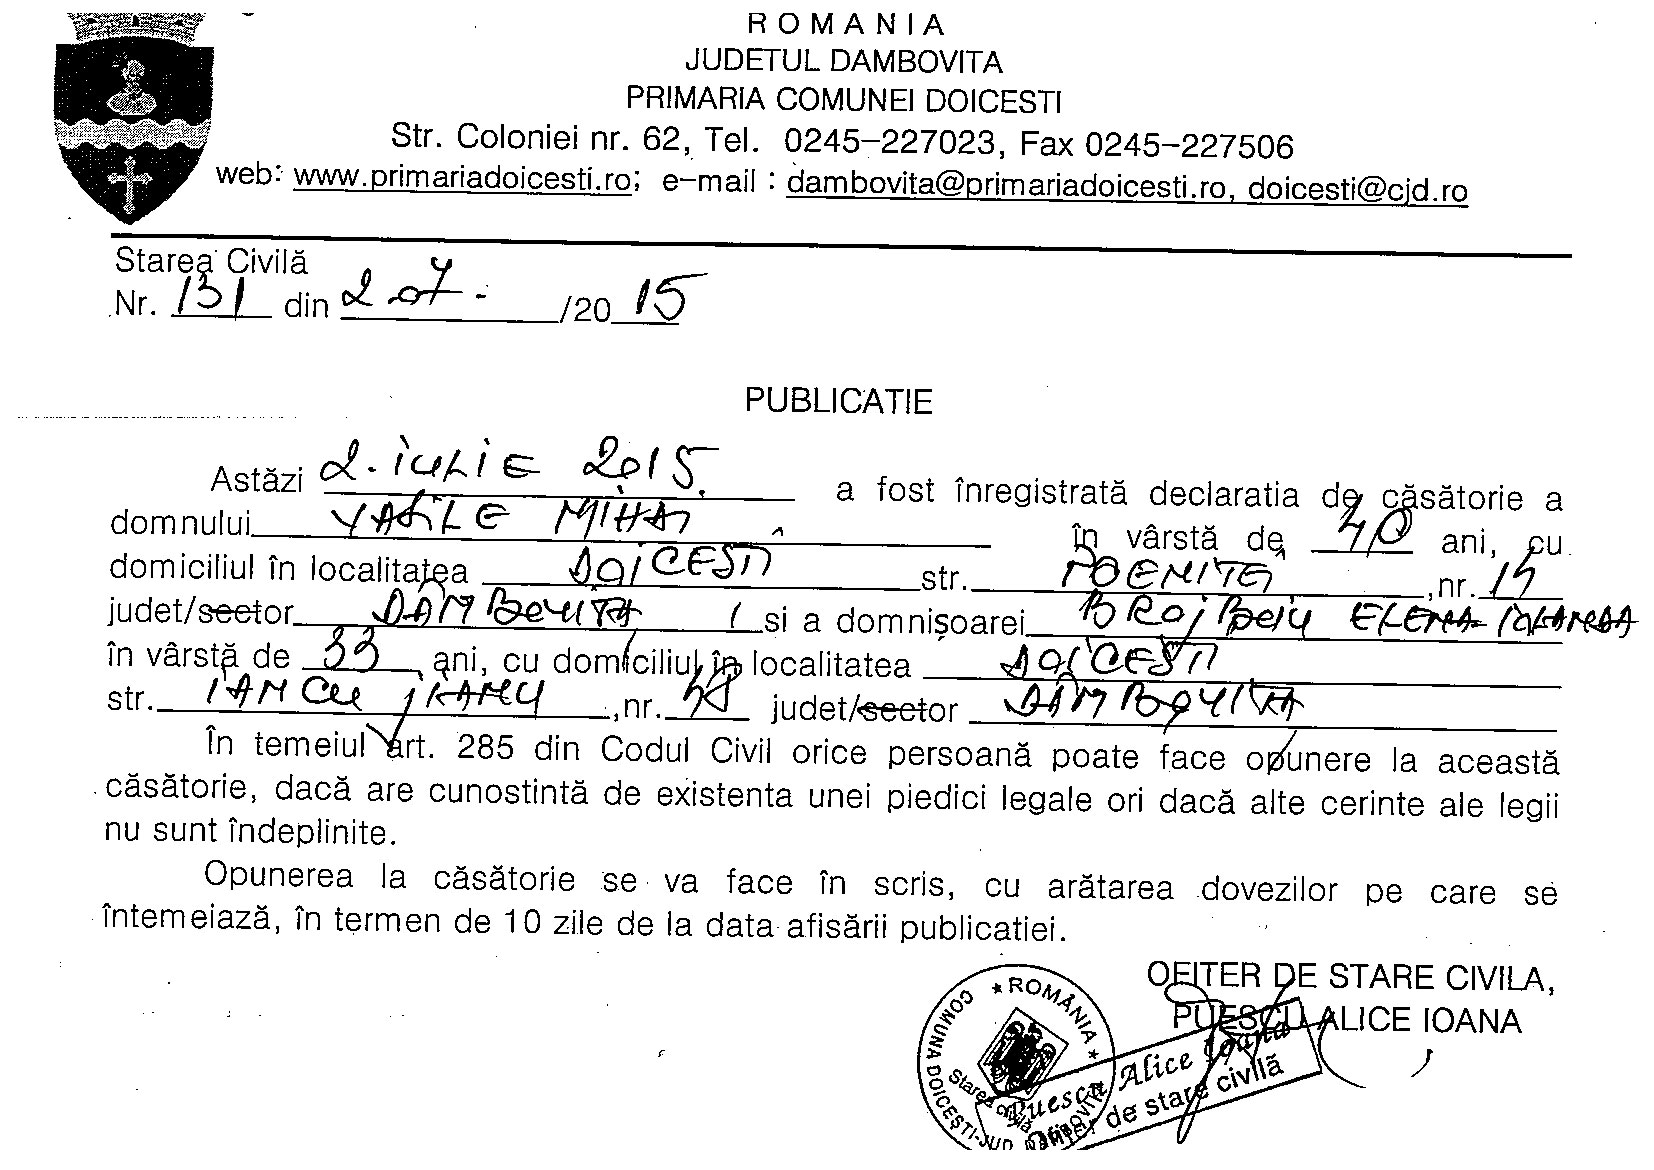 ROMANIA
JUDETUL DAMBOVITA
PRIMARIA COMUNEI DOICESTI
Str. Coloniei nr. 62, Tel. 0245-227023, Fax 0245-227506
web: www.primariadoicesti.ro; e-mail : dambovita@primariadoicesti.ro, doicesti@cjd.ro
Starea Civilă
Nr. 131 din 2.07. /2015
PUBLICATIE
Astăzi 2. iulie 2015. a fost înregistrată declaratia de căsătorie a
domnului VASILE MIHAI în vârstă de 40 ani, cu
domiciliul în localitatea DOICESTI str. POENITEI ,nr. 15
judet/sector DÂMBOVITA si a domnișoarei BROJBOIU ELENA IOLANDA
în vârstă de 33 ani, cu domiciliul în localitatea DOICESTI
str. IANCU JIANU ,nr. judet/sector DÂMBOVITA
În temeiul art. 285 din Codul Civil orice persoană poate face opunere la această
căsătorie, dacă are cunostintă de existenta unei piedici legale ori dacă alte cerinte ale legii
nu sunt îndeplinite.
Opunerea la căsătorie se va face în scris, cu arătarea dovezilor pe care se
întemeiază, în termen de 10 zile de la data afisării publicatiei.
OFITER DE STARE CIVILA,
PUESCU ALICE IOANA
★ ROMÂNIA ★
COMUNA DOICEȘTI-JUD. DÂMBOVIȚA
Starea civilă
Puescu Alice Ioana
Ofițer de stare civilă